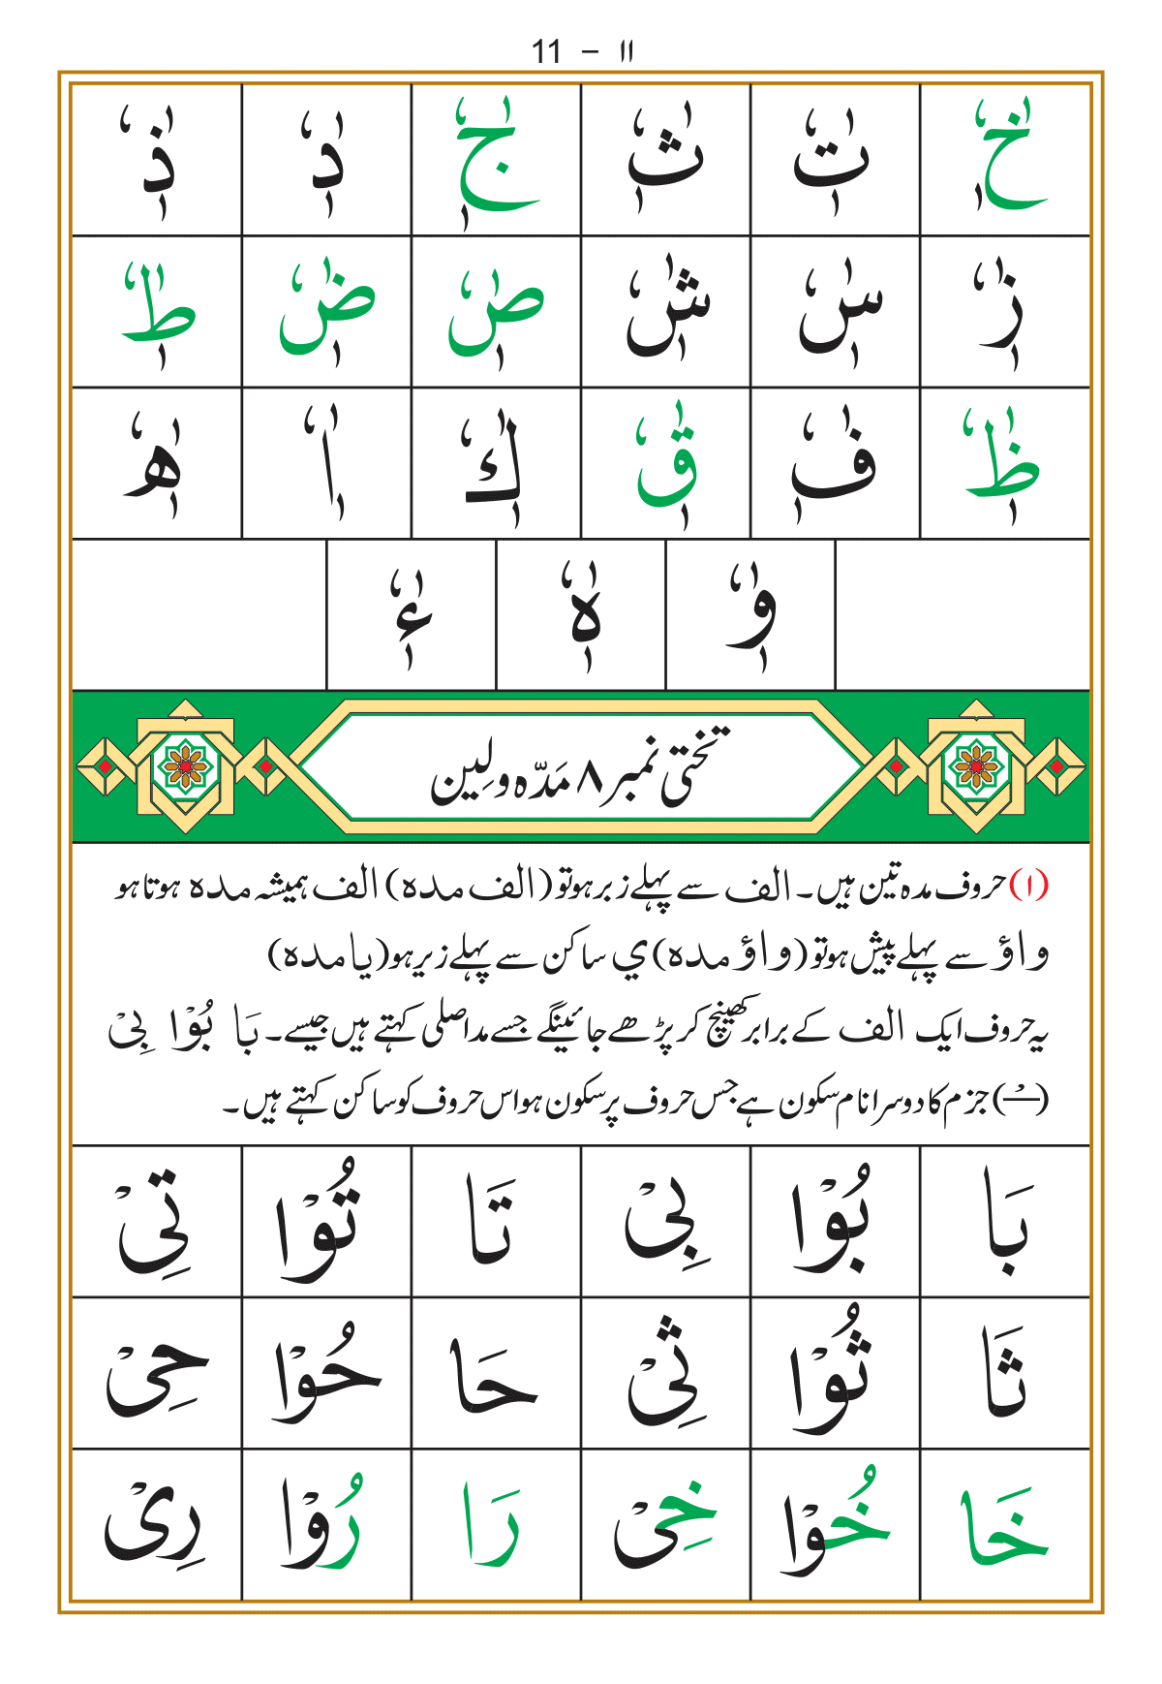 11 – ۱۱
خٰٖٗ تٰٖٗ ثٰٖٗ جٰٖٗ دٰٖٗ ذٰٖٗ
زٰٖٗ سٰٖٗ شٰٖٗ صٰٖٗ ضٰٖٗ طٰٖٗ
ظٰٖٗ فٰٖٗ قٰٖٗ كٰٖٗ اٰٖٗ ھٰٖٗ
وٰٖٗ هٰٖٗ ءٰٖٗ
تختی نمبر ۸ مَدّہ و لِین
(۱) حروف مدہ تین ہیں۔ الف سے پہلے زبر ہو تو (الف مدہ) الف ہمیشہ مدہ ہوتا ہو
واؤ سے پہلے پیش ہو تو (واؤ مدہ) ي ساکن سے پہلے زیر ہو (یا مدہ)
یہ حروف ایک الف کے برابر کھینچ کر پڑھے جائینگے جسے مد اصلی کہتے ہیں جیسے۔ بَا بُوْا بِیْ
(ــْـ) جزم کا دوسرا نام سکون ہے جس حروف پر سکون ہو اس حروف کو ساکن کہتے ہیں۔
بَا بُوْا بِیْ تَا تُوْا تِیْ
ثَا ثُوْا ثِیْ حَا حُوْا حِیْ
خَا خُوْا خِیْ رَا رُوْا رِیْ